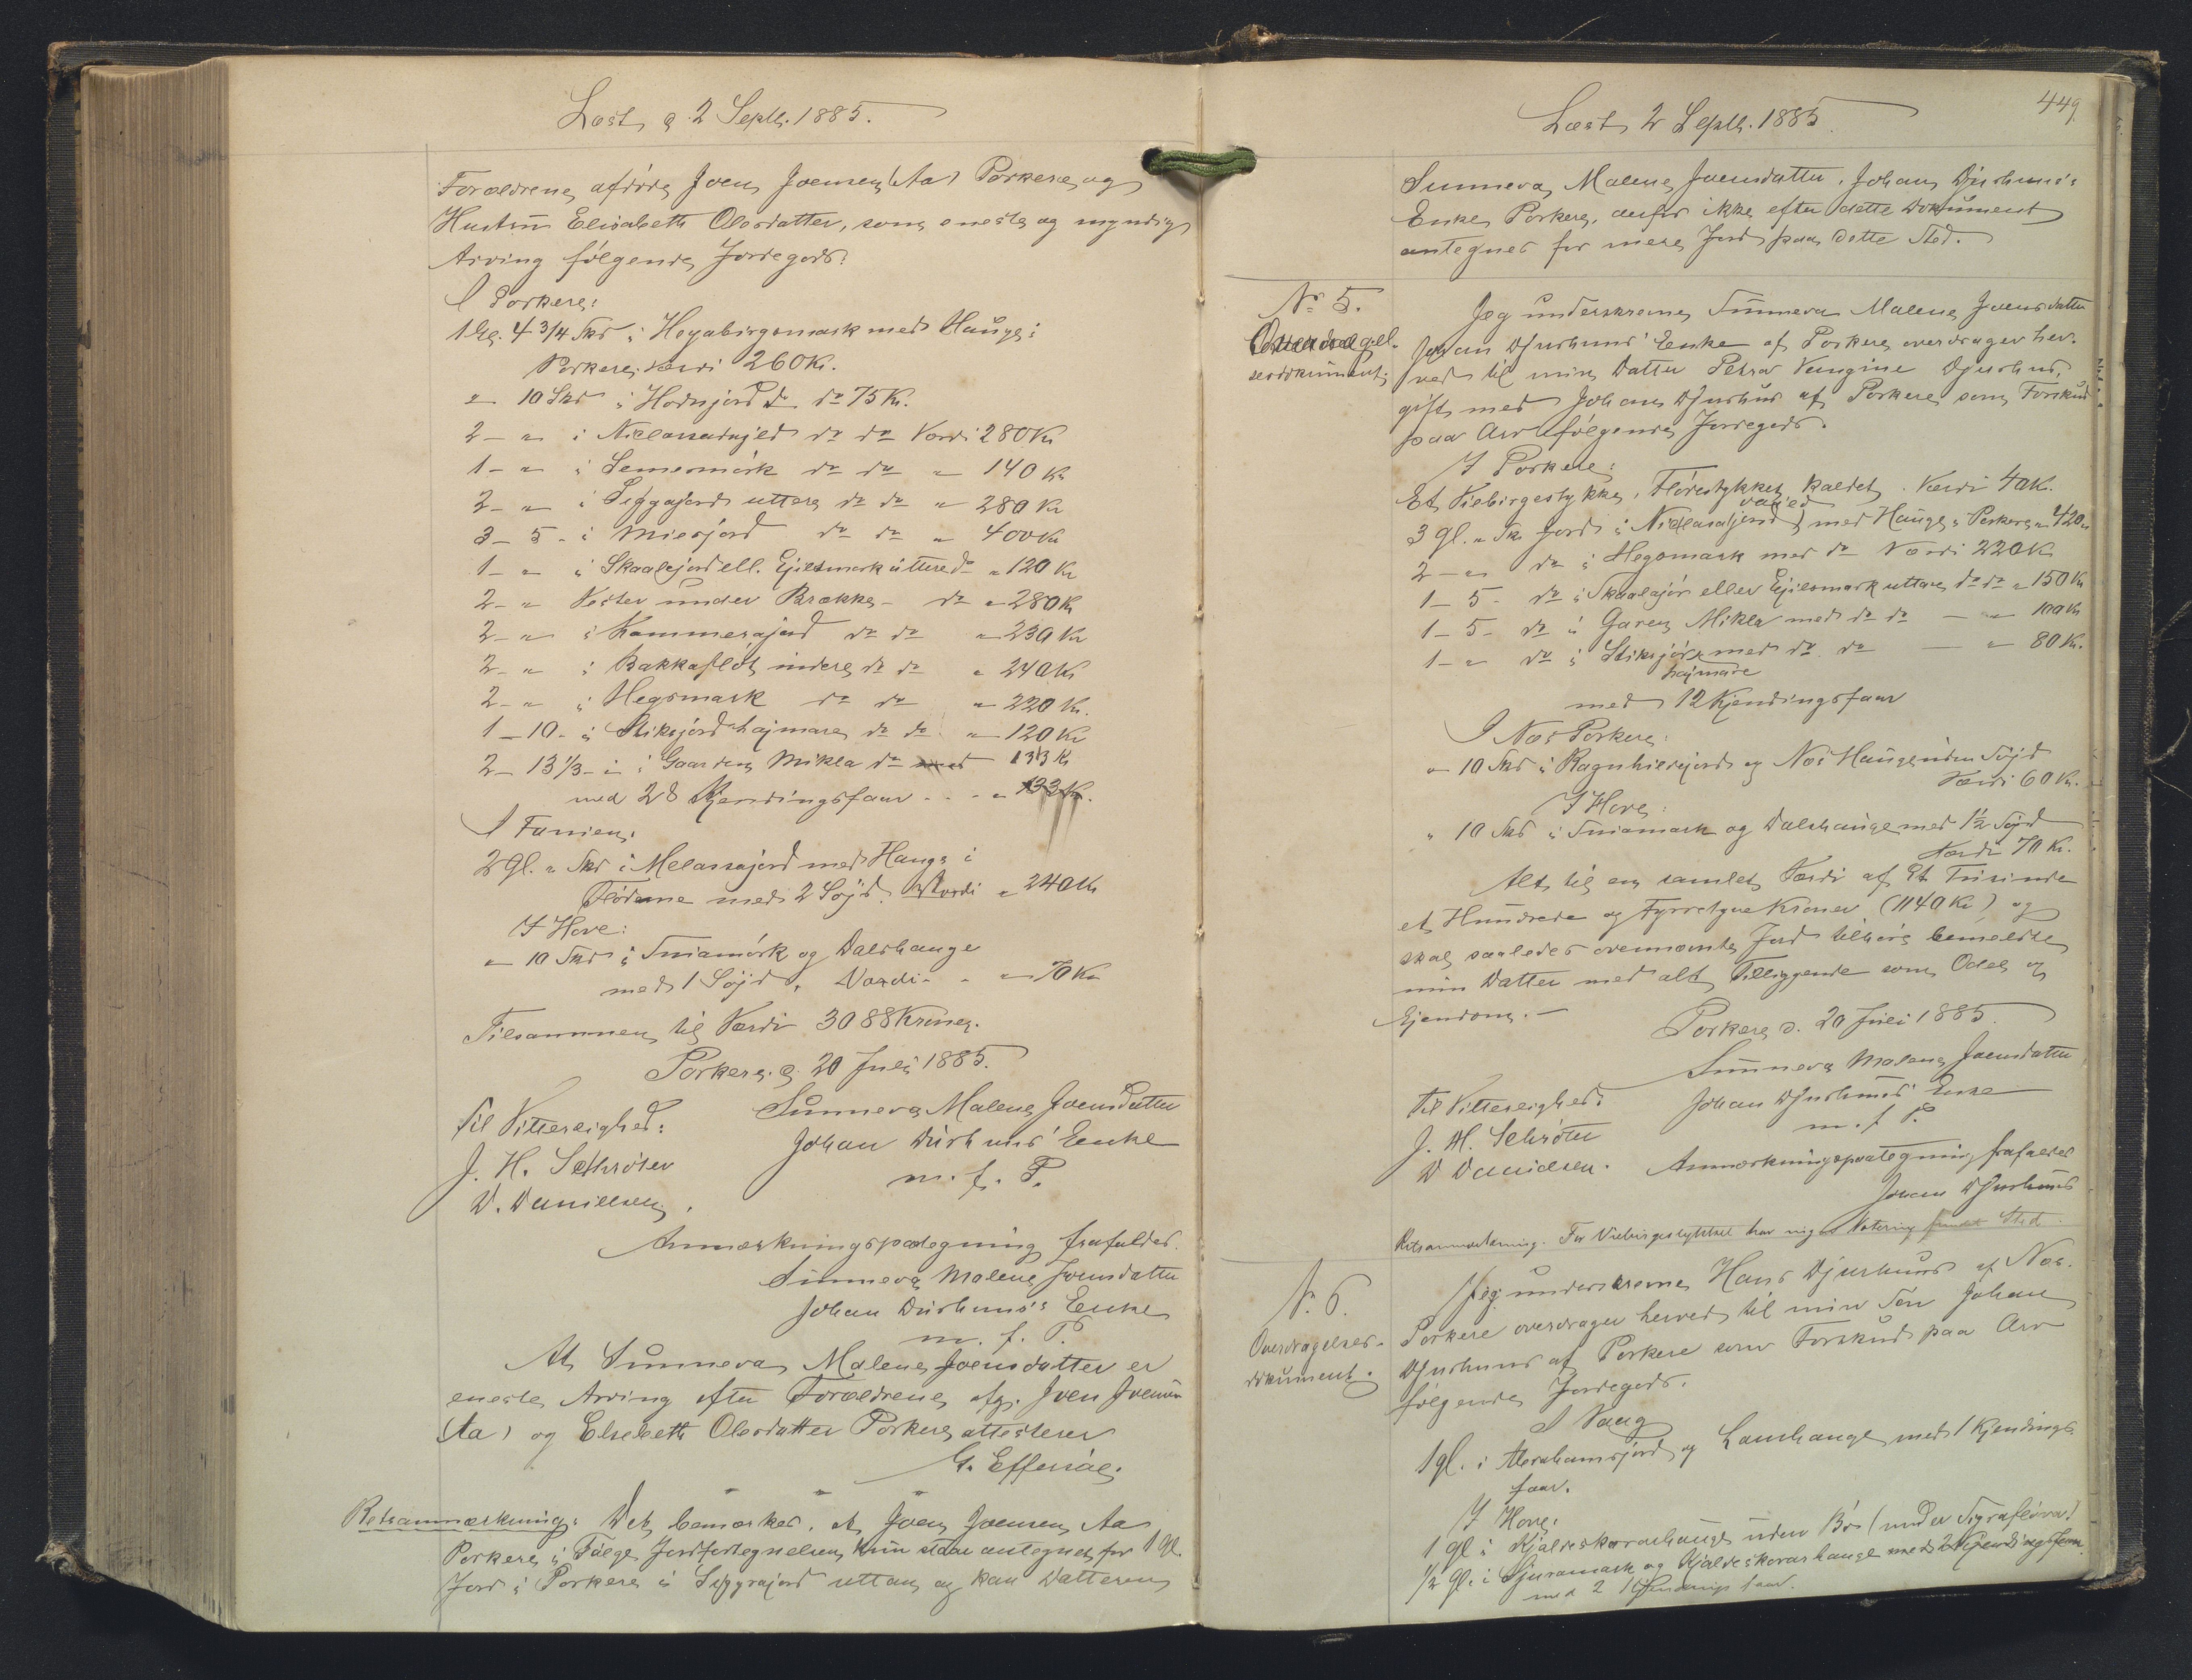 Læst, d. 2 Septb. 1885.
Forældrene, afdøde Joen Joensen (Aa) Porkere, og
Hustru Elisabeth Olesdatter, som eneste og myndig
Arving følgende Jordegods:
I Porkere:
1 Gl. 4 3/4 Skd i Heyabirgsmark med Hauge i
Porkere, Værdi 260 Kr.
" 10 Skd i Hornjord do do 75 Kr.
2 - " i Niclassarsjord do do Værdi 280 Kr
1 - " i Semsmørk do do " 140 Kr
2 - " i Siggajord uttere do do " 280 Kr
3 - 5 - i Miesjord do do " 400 Kr
1 - " i Skaalejord ell. Ejelsmork uttere do " 120 Kr
2 - " Vester under Brekke - do " 280 Kr
2 - " i Kammerajord do do " 230 Kr
2 - " i Bakkafledt indere do do " 240 Kr
2 - " i Hegsmark do do " 220 Kr.
1 - 10 - i Stiksjørd højmare do do " 120 Kr
2 - 13 1/3 - i Gaarden Mikla do med 133 Kr
med 28 Kjendingsfaar - - - " 133 Kr.
I Famien:
2 gl. " Skd i Melassajord med Hauge i
Fløderne med 2 Søjd. Værdi " 240 Kr
I Hove:
" 10 Skd i Sniamørk og Dalshauge
med 1 Søjd, Værdi - - " 70 Kr
Tilsammen til Værdi 3088 Kroner.
Porkere, d. 20 Juli 1885.
Til Vitterlighed: Sunneva Malene Joensdatter
J. H. Schrøter Johan Djurhuus' Enke
D. Danielsen. m. f. P.
Anmærkningspaategning frafaldes.
Sunneva Malene Joensdatter
Johan Djurhuus's Enke
m. f. P.
At Sunneva Malene Joensdatter er
eneste Arving efter Forældrene, afg. Joen Joensen
(Aa) og Elsebeth Olesdatter Porkere, attesterer
G. Effersøe.
Retsanmærkning: Det bemærkes, at Joen Joensen Aa
Porkere i Følge Jordfortegnelsen kun staar antegnet for 1 gl.
Jord i Porkere i Siggrajord uttan, og kan Datteren
Læst 2 Septb. 1885. 449.
Sunneva Malene Joensdatter, Johan Djurhuus's
Enke, Porkere, derfor ikke efter dette Dokument
antegnes for mere Jord paa dette Sted.
No 5.
Overdragel-
sesdokument.
Jeg underskrevne Sunneva Malene Joensdatter
Johan Djurhuus' Enke af Porkere overdrager her-
ved til min Datter Petra Djurhuus,
gift med Johan Djurhuus af Porkere som Forskud
paa Arv følgende Jordegods.
I Porkere:
Et Viebirgestykke, Flórestykket kaldet. Værdi 40 K.
3 gl. " Sk. Jord i Niclasarjord med Hauge i Porkere " 420 "
2 - " do i Hegsmark med do Værdi 220 K
1 - 5 - do i Skaalajør eller Ejelsmork uttere do do " 150 Kr
1 - 5 - do i Garen Mikla med do do - " 100 Kr
1 - " do i Stiksjørd med do do - " 80 Kr.
højmare
med 12 Kjendingsfaar
I Næs Porkere:
" 10 Skd i Ragnhildejord og Næs Hauge uden Søjd
Værdi 60 Kr.
I Hove:
" 10 Skd i Sniamark og Dalshauge med 1½ Søjd
Værdi 70 Kr.
Alt til en samlet Værdi af Et Tusinde
et Hundrede og Fyrretyve Kroner (1140 Kr) og
skal saaledes ovennævnte Jord tilhøre bemeldte
min Datter med alt Tilliggende som Odel og
Ejendom. -
Porkere d. 20 Juli 1885.
Sunneva Malene Joensdatter
Til Vitterlighed: Johan Djurhuus' Enke
J. H. Schrøter m. f. P.
D Danielsen. Anmærkningspaategning frafaldes
Johan Djurhuus
Retsanmærkning. For Viebirgestykket har ingen Notering fundet Sted.
No 6.
Overdragelses-
dokument.
Jeg underskrevne Hans Djurhuus af Næs-
Porkere overdrager herved til min Søn Johan
Djurhuus af Porkere som Forskud paa Arv
følgende Jordegods.
I Vaag
1 gl. i Abrahamsjord og Lamhauge med 1 Kjendings-
faar.
I Hove:
1 gl i Kjaldeskorarhauge uden Bø (under Sygraflóvra)
1/2 gl. i Sjuramark og Kjaldeskorarhauge med 2 Kjendingsfaar
med 2 Kjendings faar.